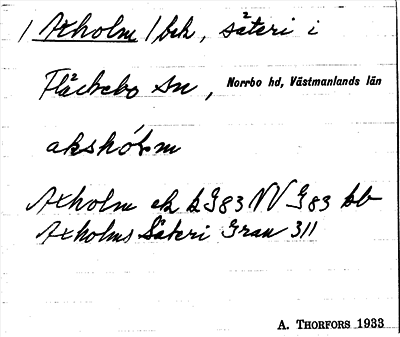 / Axholm / bek, säteri i
Fläckebo sn, Norrbo hd, Västmanlands län
akshólm
Axholm ek bG83 NV G83 bb
Axholms Säteri Gran 311
A. THORFORS 1933